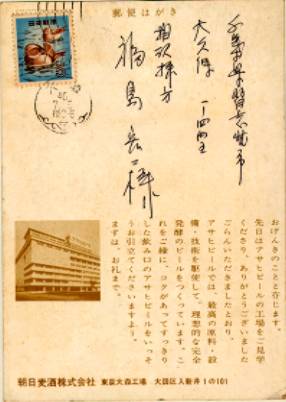 郵便はがき
日本郵便
千葉県習志野市
大久保 一ー四四五
福島
様
おげんきのことと存じます。
先日はアサヒビールの工場をご見学
くださり、ありがとうございました
ごらんいただきましたとおり、
アサヒビールでは、最高の原料・設
備・技術を駆使して、理想的な完全
発酵のビールをつくっています。こ
れをご縁に、コクがあってすっきり
した飲み口のアサヒビールをいっそ
うお引立てくださいますよう。
まずは、お礼まで。
朝日麦酒株式会社 東京大森工場 大田区入新井1の101